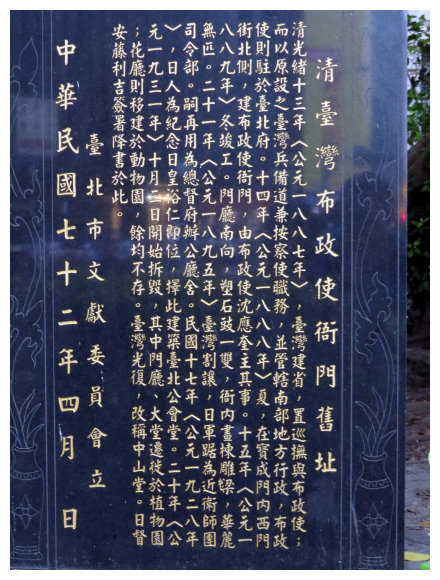 清臺灣布政使衙門舊址
清光緒十三年〈公元一八八七年〉，臺灣建省，置巡撫與布政使；
而以原設之臺灣兵備道兼按察使職務，並管轄南部地方行政，布政
使則駐於臺北府。十四年〈公元一八八八年〉夏，在寶成門內西門
街北側，建布政使衙門，由布政使沈應奎主其事。十五年〈公元一
八八九年〉冬竣工。門廳南向，塑石鼓一雙，衙內畫棟雕梁，華麗
無匹。二十一年〈公元一八九五年〉臺灣割讓，日軍踞為近衛師團
司令部。嗣再用為總督府辦公廳舍。民國十七年〈公元一九二八年
〉，日人為紀念日皇裕仁即位，擇此建築臺北公會堂。二十年〈公
元一九三一年〉十月二日開始拆毀，其中門廳、大堂遷徙於植物園
；花廳則移建於動物園，餘均不存。臺灣光復，改稱中山堂。日督
安藤利吉簽署降書於此。
臺北市文獻委員會立
中華民國七十二年四月　日